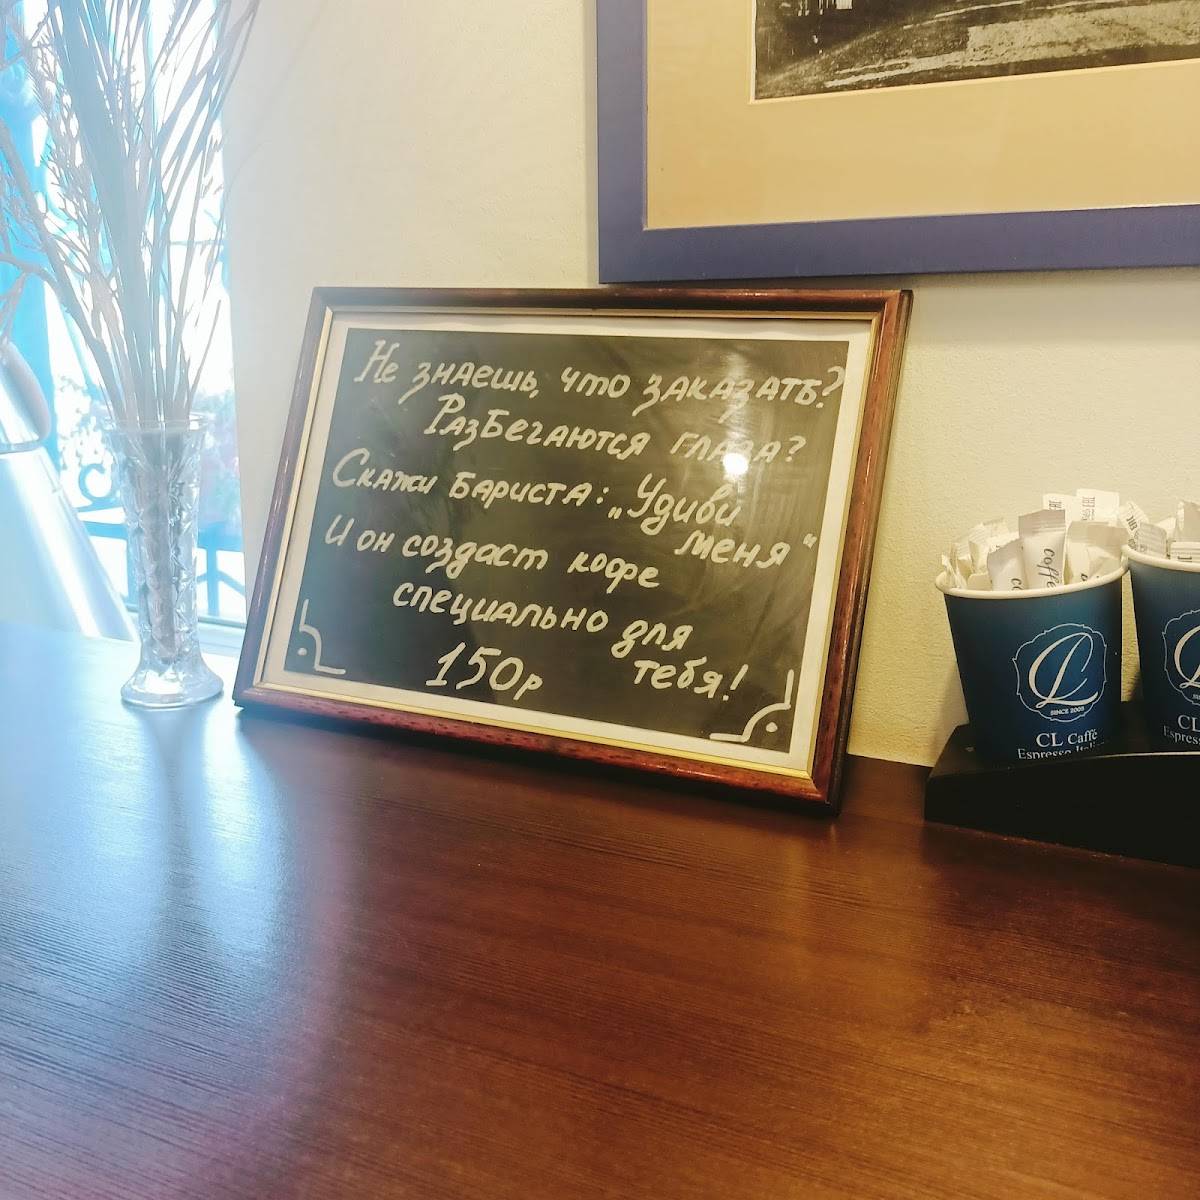 Не знаешь, что заказать?
Разбегаются глаза?
Скажи бариста: „Удиви
меня“
И он создаст кофе
специально для
тебя!
150р
coffee
CL
SINCE 2005
CL Caffé
Espresso Italia
CL
Espress